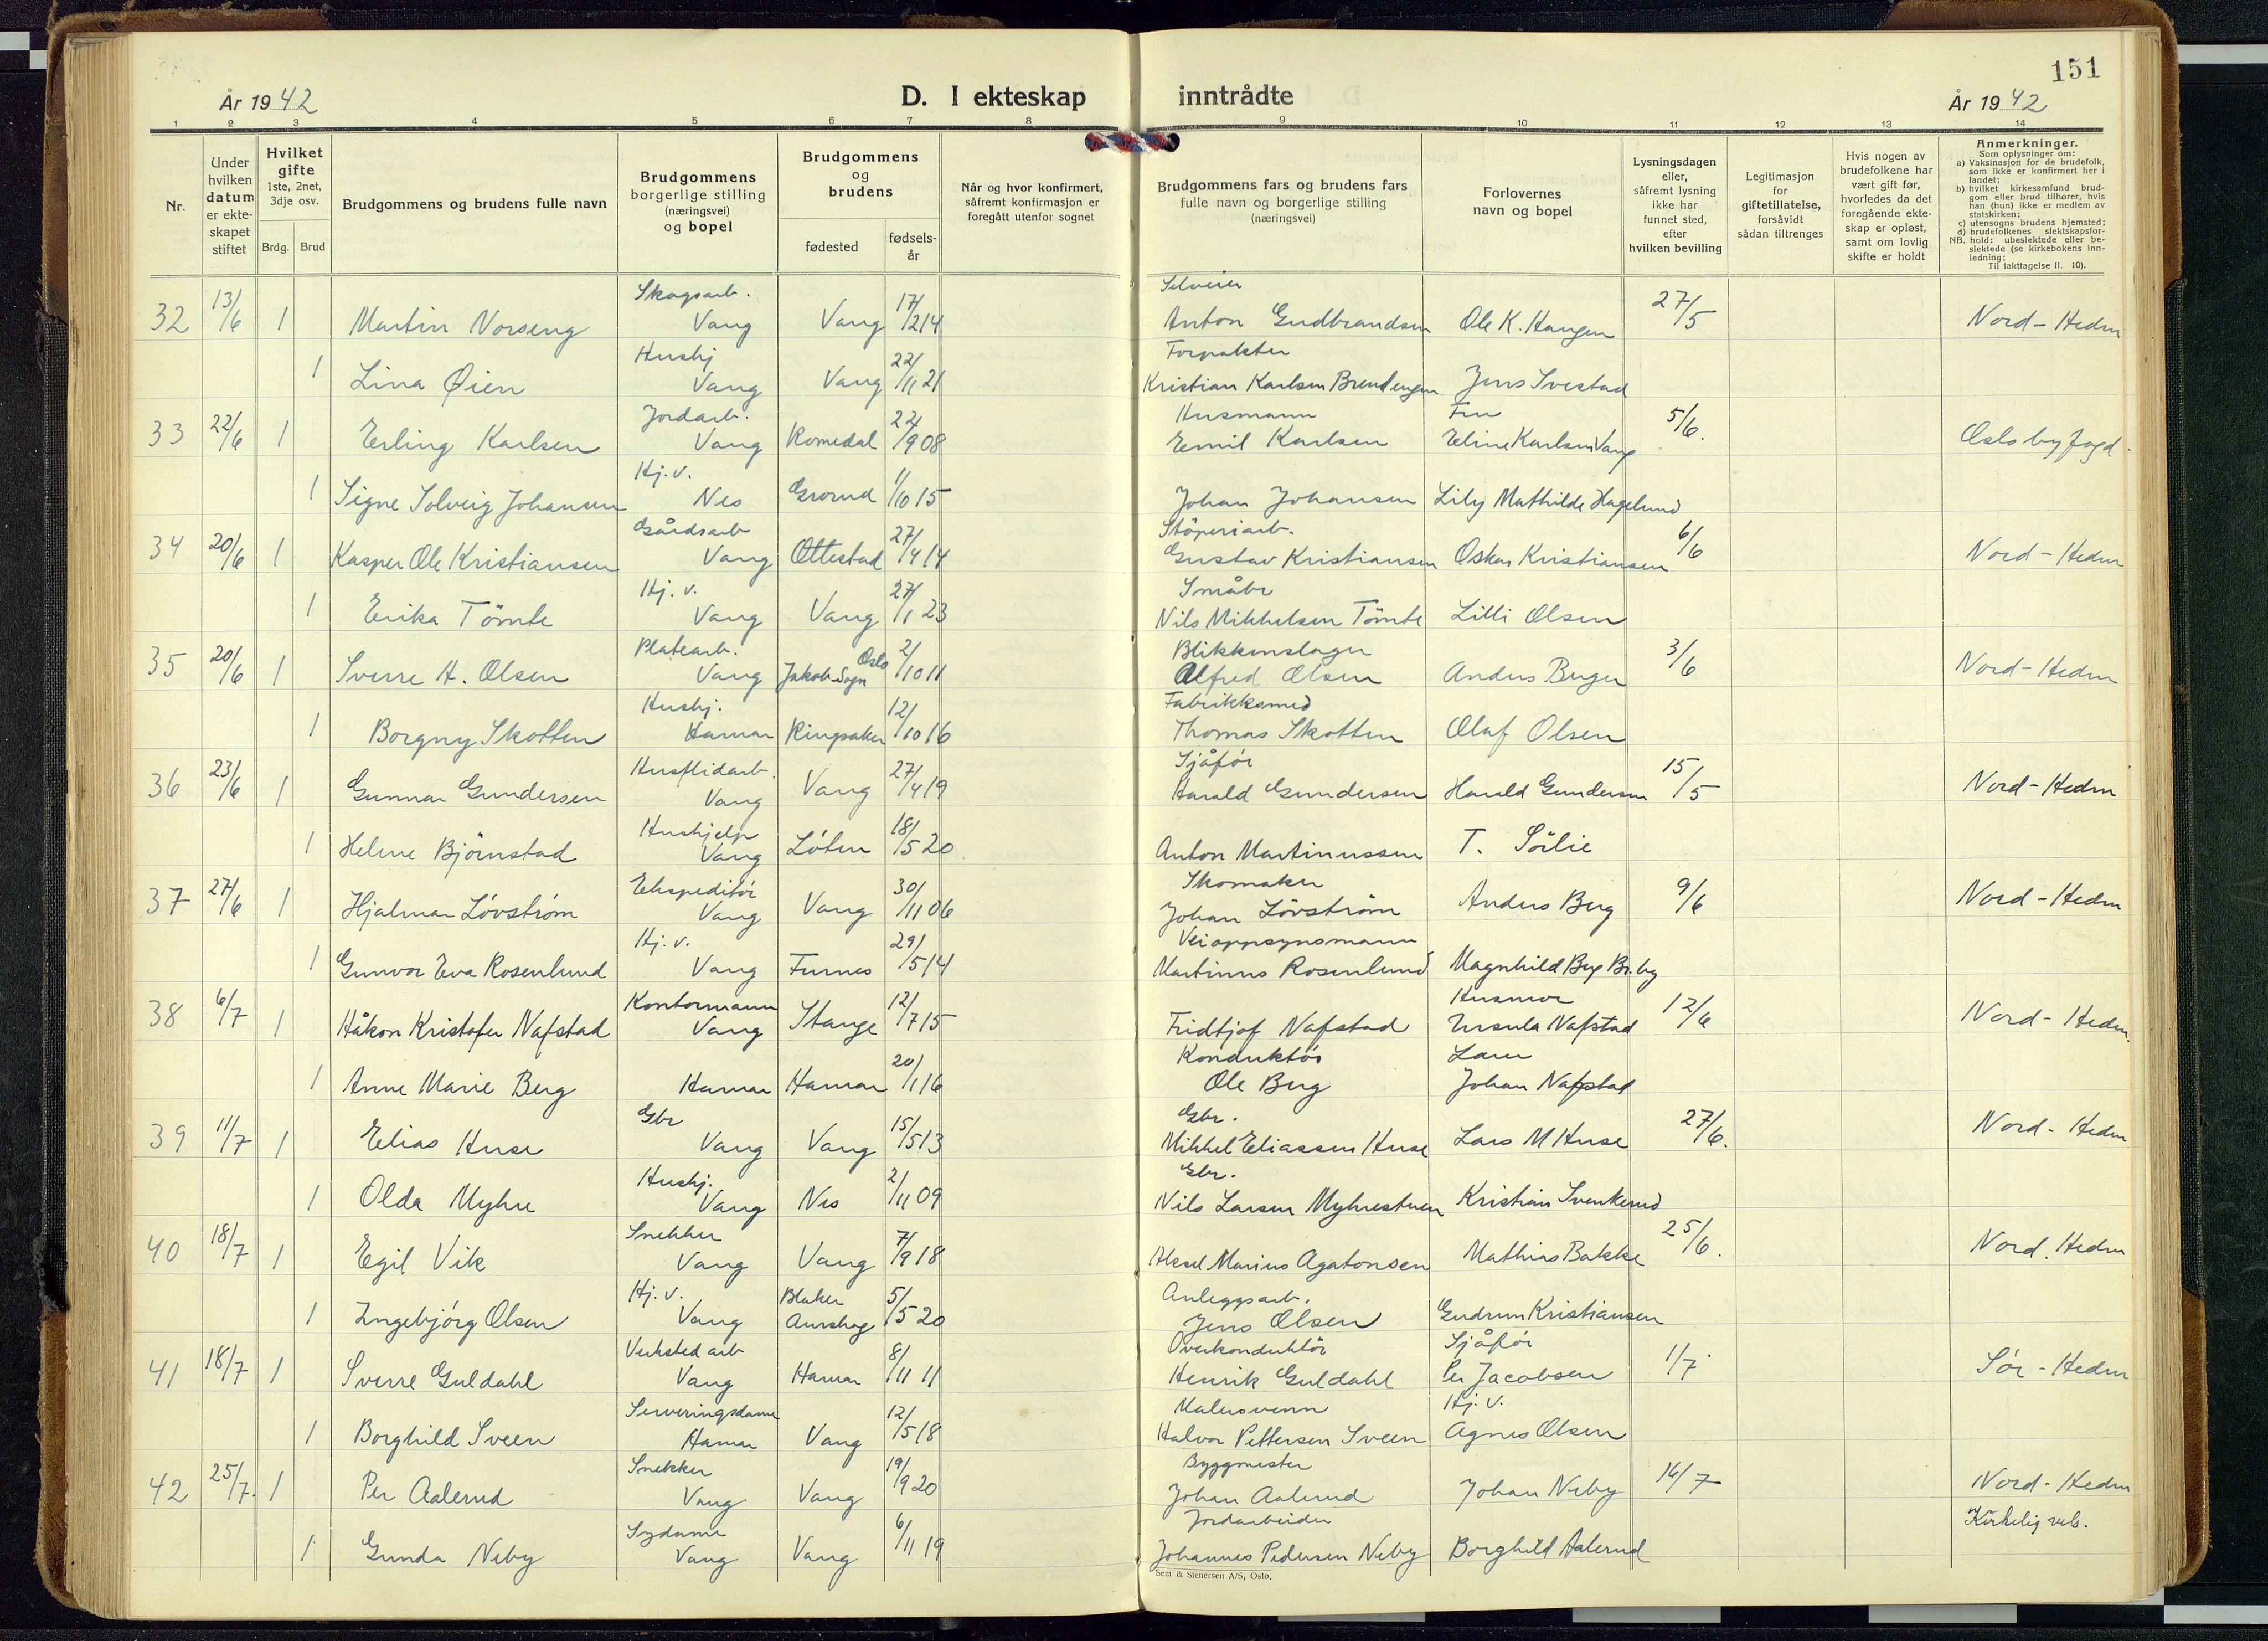 151
År 1942
D. I ekteskap inntrådte
År 1942
1 2 3 4 5 6 7 8 9 10 11 12 13 14
Nr.
Under hvilken datum er ekteskapet stiftet
Hvilket gifte 1ste, 2net, 3dje osv.
Brdg. Brud
Brudgommens og brudens fulle navn
Brudgommens borgerlige stilling (næringsvei) og bopel
Brudgommens og brudens
fødested
fødsels-år
Når og hvor konfirmert, såfremt konfirmasjon er foregått utenfor sognet
Brudgommens fars og brudens fars fulle navn og borgerlige stilling (næringsvei)
Forlovernes navn og bopel
Lysningsdagen eller, såfremt lysning ikke har funnet sted, efter hvilken bevilling
Legitimasjon for giftetillatelse, forsåvidt sådan tiltrenges
Hvis nogen av brudefolkene har vært gift før, hvorledes da det foregående ekteskap er opløst, samt om lovlig skifte er holdt
Anmerkninger.
Som oplysninger om:
a) Vaksinasjon for de brudefolk, som ikke er konfirmert her i landet;
b) hvilket kirkesamfund brudgom eller brud tilhører, hvis han (hun) ikke er medlem av statskirken;
c) utensogns brudens hjemsted;
d) brudefolkenes slektskapsforhold: ubeslektede eller beslektede (se kirkebokens innledning;
NB.
Til iakttagelse II. 10).
32 13/6 1 Martin Norseng Skogsarb. Vang Vang 17/2 14 Selveier Anton Gudbrandsen Ole K. Haugen 27/5 Nord-Hedm
1 Lina Øien Hushj Vang Vang 22/11 21 Forpakter Kristian Karlsen Brendengen Jens Svestad
33 22/6 1 Erling Karlsen Jordarb. Vang Romedal 22/9 08 Husmann Emil Karlsen Fru Eline Karlsen Vang 5/6. Oslo byfogd.
1 Signe Solveig Johansen Hj.v. Nes Grorud 1/10 15 Johan Johansen Lily Mathilde Hagelund
34 20/6 1 Kasper Ole Kristiansen Gårdsarb Vang Ottestad 27/4 14 Støperiarb. Gustav Kristiansen Oskar Kristiansen 6/6 Nord-Hedm
1 Erika Tömte Hj.v. Vang Vang 27/1 23 Småbr Nils Mikkelsen Tömte Lilli Olsen
35 20/6 1 Sverre H. Olsen Platearb. Vang Jakob Sogn Oslo 2/10 11 Blikkenslager Alfred Olsen Anders Berger 3/6 Nord-Hedm
1 Borgny Skotten Hushj. Hamar Ringsaker 12/10 16 Fabrikksmed Thomas Skotten Olaf Olsen
36 23/6 1 Gunnar Gundersen Husflidarb. Vang Vang 27/4 19 Sjåfør Harald Gundersen Harald Gundersen 15/5 Nord-Hedm
1 Helene Bjørnstad Hushjelp Vang Løten 18/5 20 Anton Martinussen T. Sørlie
37 27/6 1 Hjalmar Løvstrøm Ekspeditør Vang Vang 30/11 06 Skomaker Johan Løvstrøm Anders Berg 9/6 Nord-Hedm
1 Gunvor Eva Rosenlund Hj.v. Vang Furnes 29/5 14 Veioppsynsmann Martinus Rosenlund Magnhild Berg Br.by
38 6/7 1 Håkon Kristofer Nafstad Kontormann Vang Stange 12/7 15 Fridtjof Nafstad Husmor Ursula Nafstad 12/6 Nord-Hedm.
1 Anne Marie Berg Hamar Hamar 20/1 16 Konduktør Ole Berg Johan Nafstad
39 11/7 1 Elias Huse Gbr Vang Vang 15/5 13 Gbr. Mikkel Eliassen Huse Lars M Huse 27/6. Nord-Hedm
1 Olda Myhre Hushj. Vang Nes 2/11 09 Gbr. Nils Larsen Myhrestuen Kristian Svenkerud
40 18/7 1 Egil Vik Snekker Vang Vang 7/9 18 Aksel Marius Agatonsen Mathias Bakke 25/6. Nord. Hedm
1 Ingebjørg Olsen Hj.v. Vang Blaker Aurskog 5/5 20 Anleggsarb. Jens Olsen Gudrun Kristiansen
41 18/7 1 Sverre Guldahl Verksted arb Vang Hamar 8/11 11 Overkonduktör Henrik Guldahl Sjåfør Per Jacobsen 1/7. Sør-Hedm
1 Borghild Sveen Serveringsdame Hamar Vang 12/5 18 Malersvenn Halvor Pettersen Sveen Hj.v. Agnes Olsen
42 25/7. 1 Per Aalerud Snekker Vang Vang 19/9 20 Byggmester Johan Aalerud Johan Neby 14/7 Nord-Hedm
1 Gunda Neby Sydame Vang Vang 6/11 19 Jordarbeider Johannes Pedersen Neby Borghild Aalerud Kirkelig vels.
Sem & Stenersen A/S, Oslo.